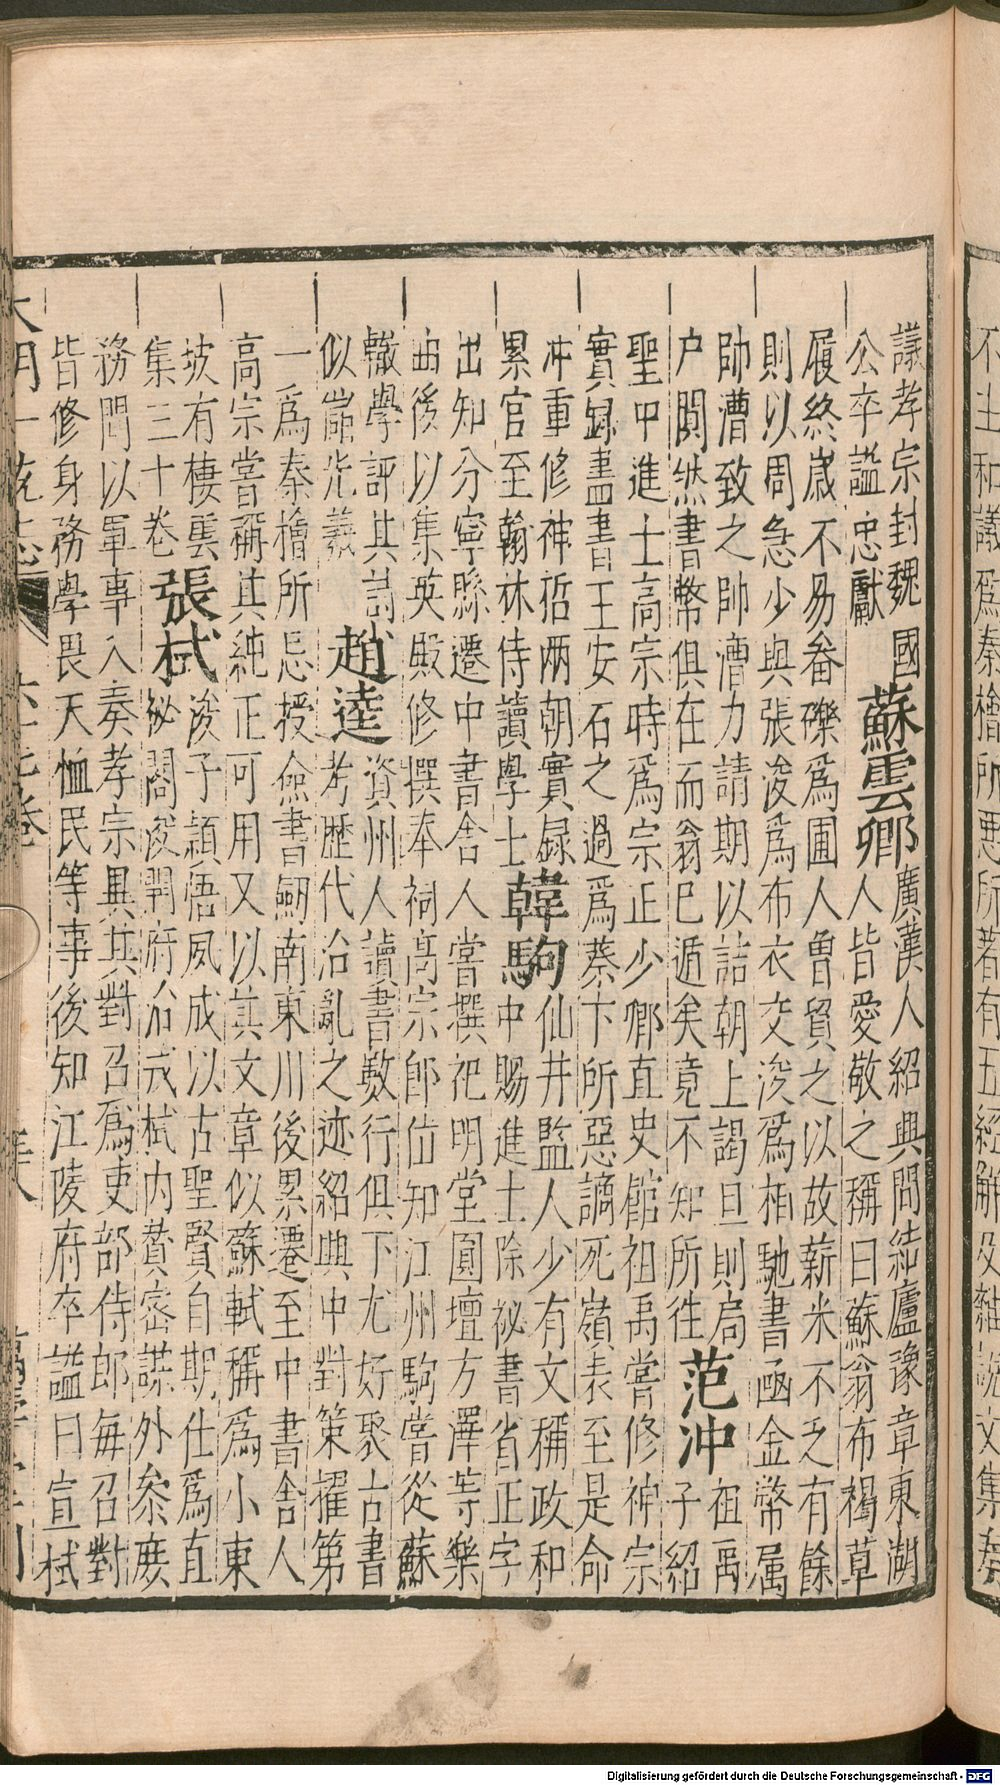 不主和議爲秦檜所惡所著有五經解及雜說文集奏
議孝宗封魏國
公卒謚忠獻
蘇雲卿
廣漢人紹興間結廬豫章東湖
人皆愛敬之稱曰蘇翁布褐草
履終歲不易畚礫爲圃人曽貿之以故薪米不乏有餘
則以周急少與張浚爲布衣交浚爲相馳書函金幣属
帥漕致之帥漕力請期以詰朝上謁旦則局
户闃然書幣俱在而翁已遁矣竟不知所往
范沖
祖禹
子紹
聖中進士高宗時爲宗正少卿直史館祖禹嘗修神宗
實録盡書王安石之過爲蔡卞所惡謫死嶺表至是命
冲重修神哲兩朝實録
累官至翰林侍讀學士
韓駒
仙井監人少有文稱政和
中賜進士除祕書省正字
出知分寧縣遷中書舍人嘗撰祀明堂圓壇方澤等樂
曲後以集英殿修撰奉祠高宗即位知江州駒嘗從蘇
轍學評其詩
似儲光羲
趙逵
資州人讀書數行俱下尤好聚古書
考歷代治亂之迹紹興中對策擢第
一爲秦檜所忌授僉書劒南東川後累遷至中書舍人
高宗嘗稱其純正可用又以其文章似蘇軾稱爲小東
坡有棲雲
集三十卷
張栻
浚子頴悟夙成以古聖賢自期仕爲直
祕閣浚開府治戎栻内賛密謀外參庶
務間以軍事入奏孝宗異其對召爲吏部侍郎每召對
皆修身務學畏天恤民等事後知江陵府卒謚曰宣栻
大明一統志
Digitalisierung gefördert durch die Deutsche Forschungsgemeinschaft - DFG